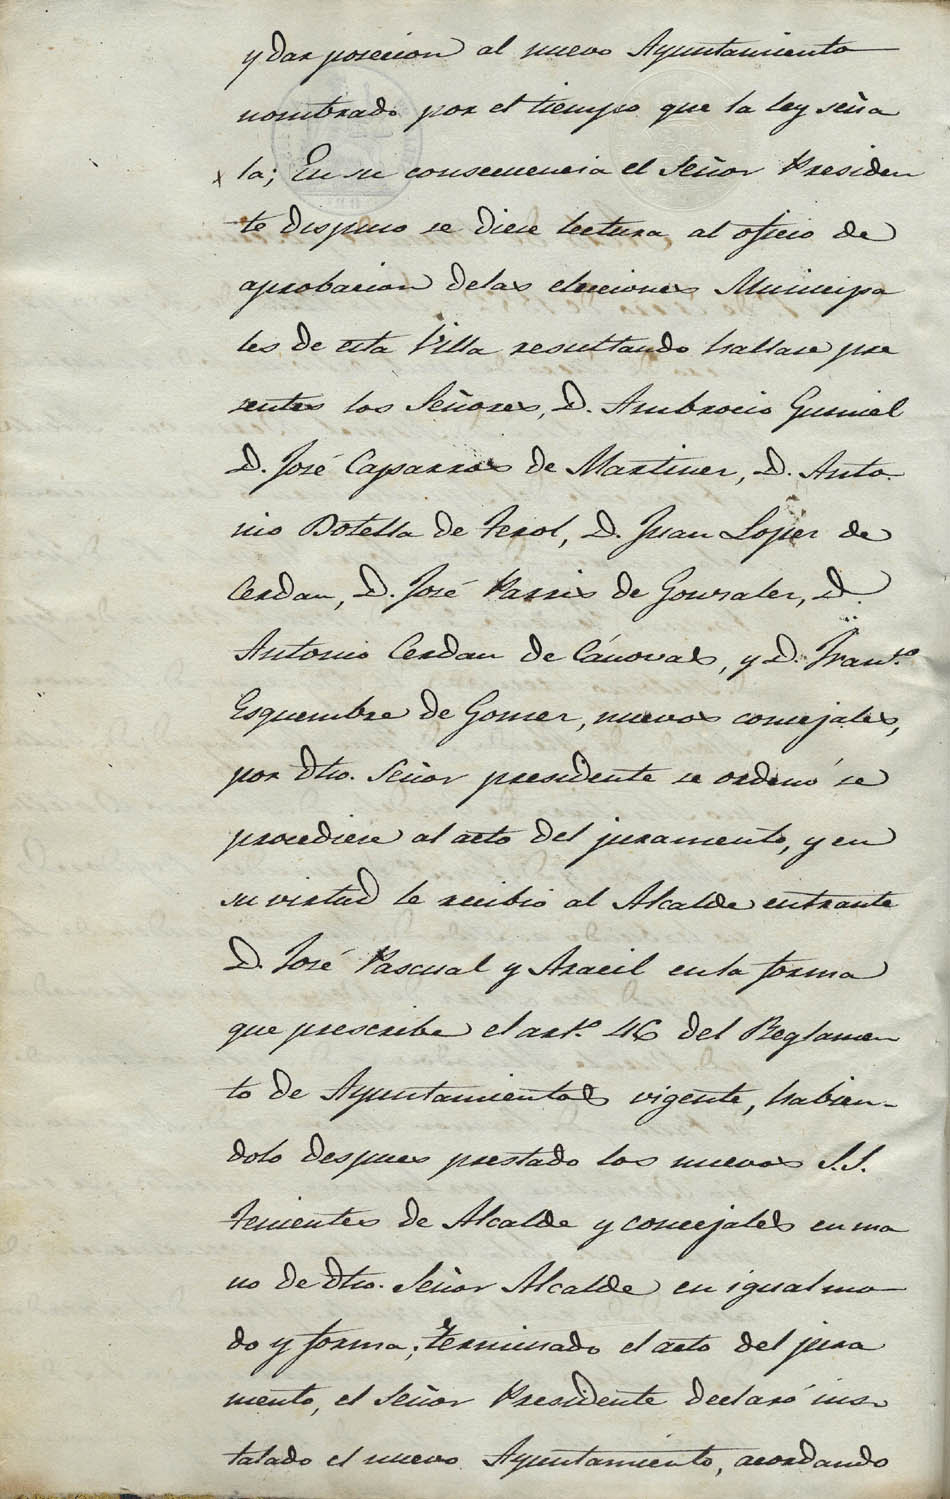 y dar posecion al nuevo Ayuntamiento
nombrado por el tiempo que la ley seña
la; En su consecuencia el Señor Presiden
te dispuso se diese lectura al oficio de
aprobacion delas elecciones Municipa
les de esta Villa resultando hallarse pre
sentes los Señores, D. Ambrocio Gumiel
D. José Caparros de Martinez, D. Anto
nio Botella de Ferol, D. Juan Lopez de
Cerdan, D. José Parris de Gonzalez, D.
Antonio Cerdan de Cánovas, y D. Fran.co
Esquembre de Gomez, nuevos concejales,
por dho. Señor presidente se ordenó se
procediese al acto del juramento, y en
su virtud le recibio al Alcalde entrante
D. José Pascual y Aracil en la forma
que prescribe el art.o 46 del Reglamen
to de Ayuntamientos vigente, habien-
dolo despues prestado los nuevos S.S.
tenientes de Alcalde y concejales en ma
no de dho. Señor Alcalde en igual mo
do y forma; terminado el acto del jura
mento, el Señor Presidente declaró ins
talado el nuevo Ayuntamiento, acordando